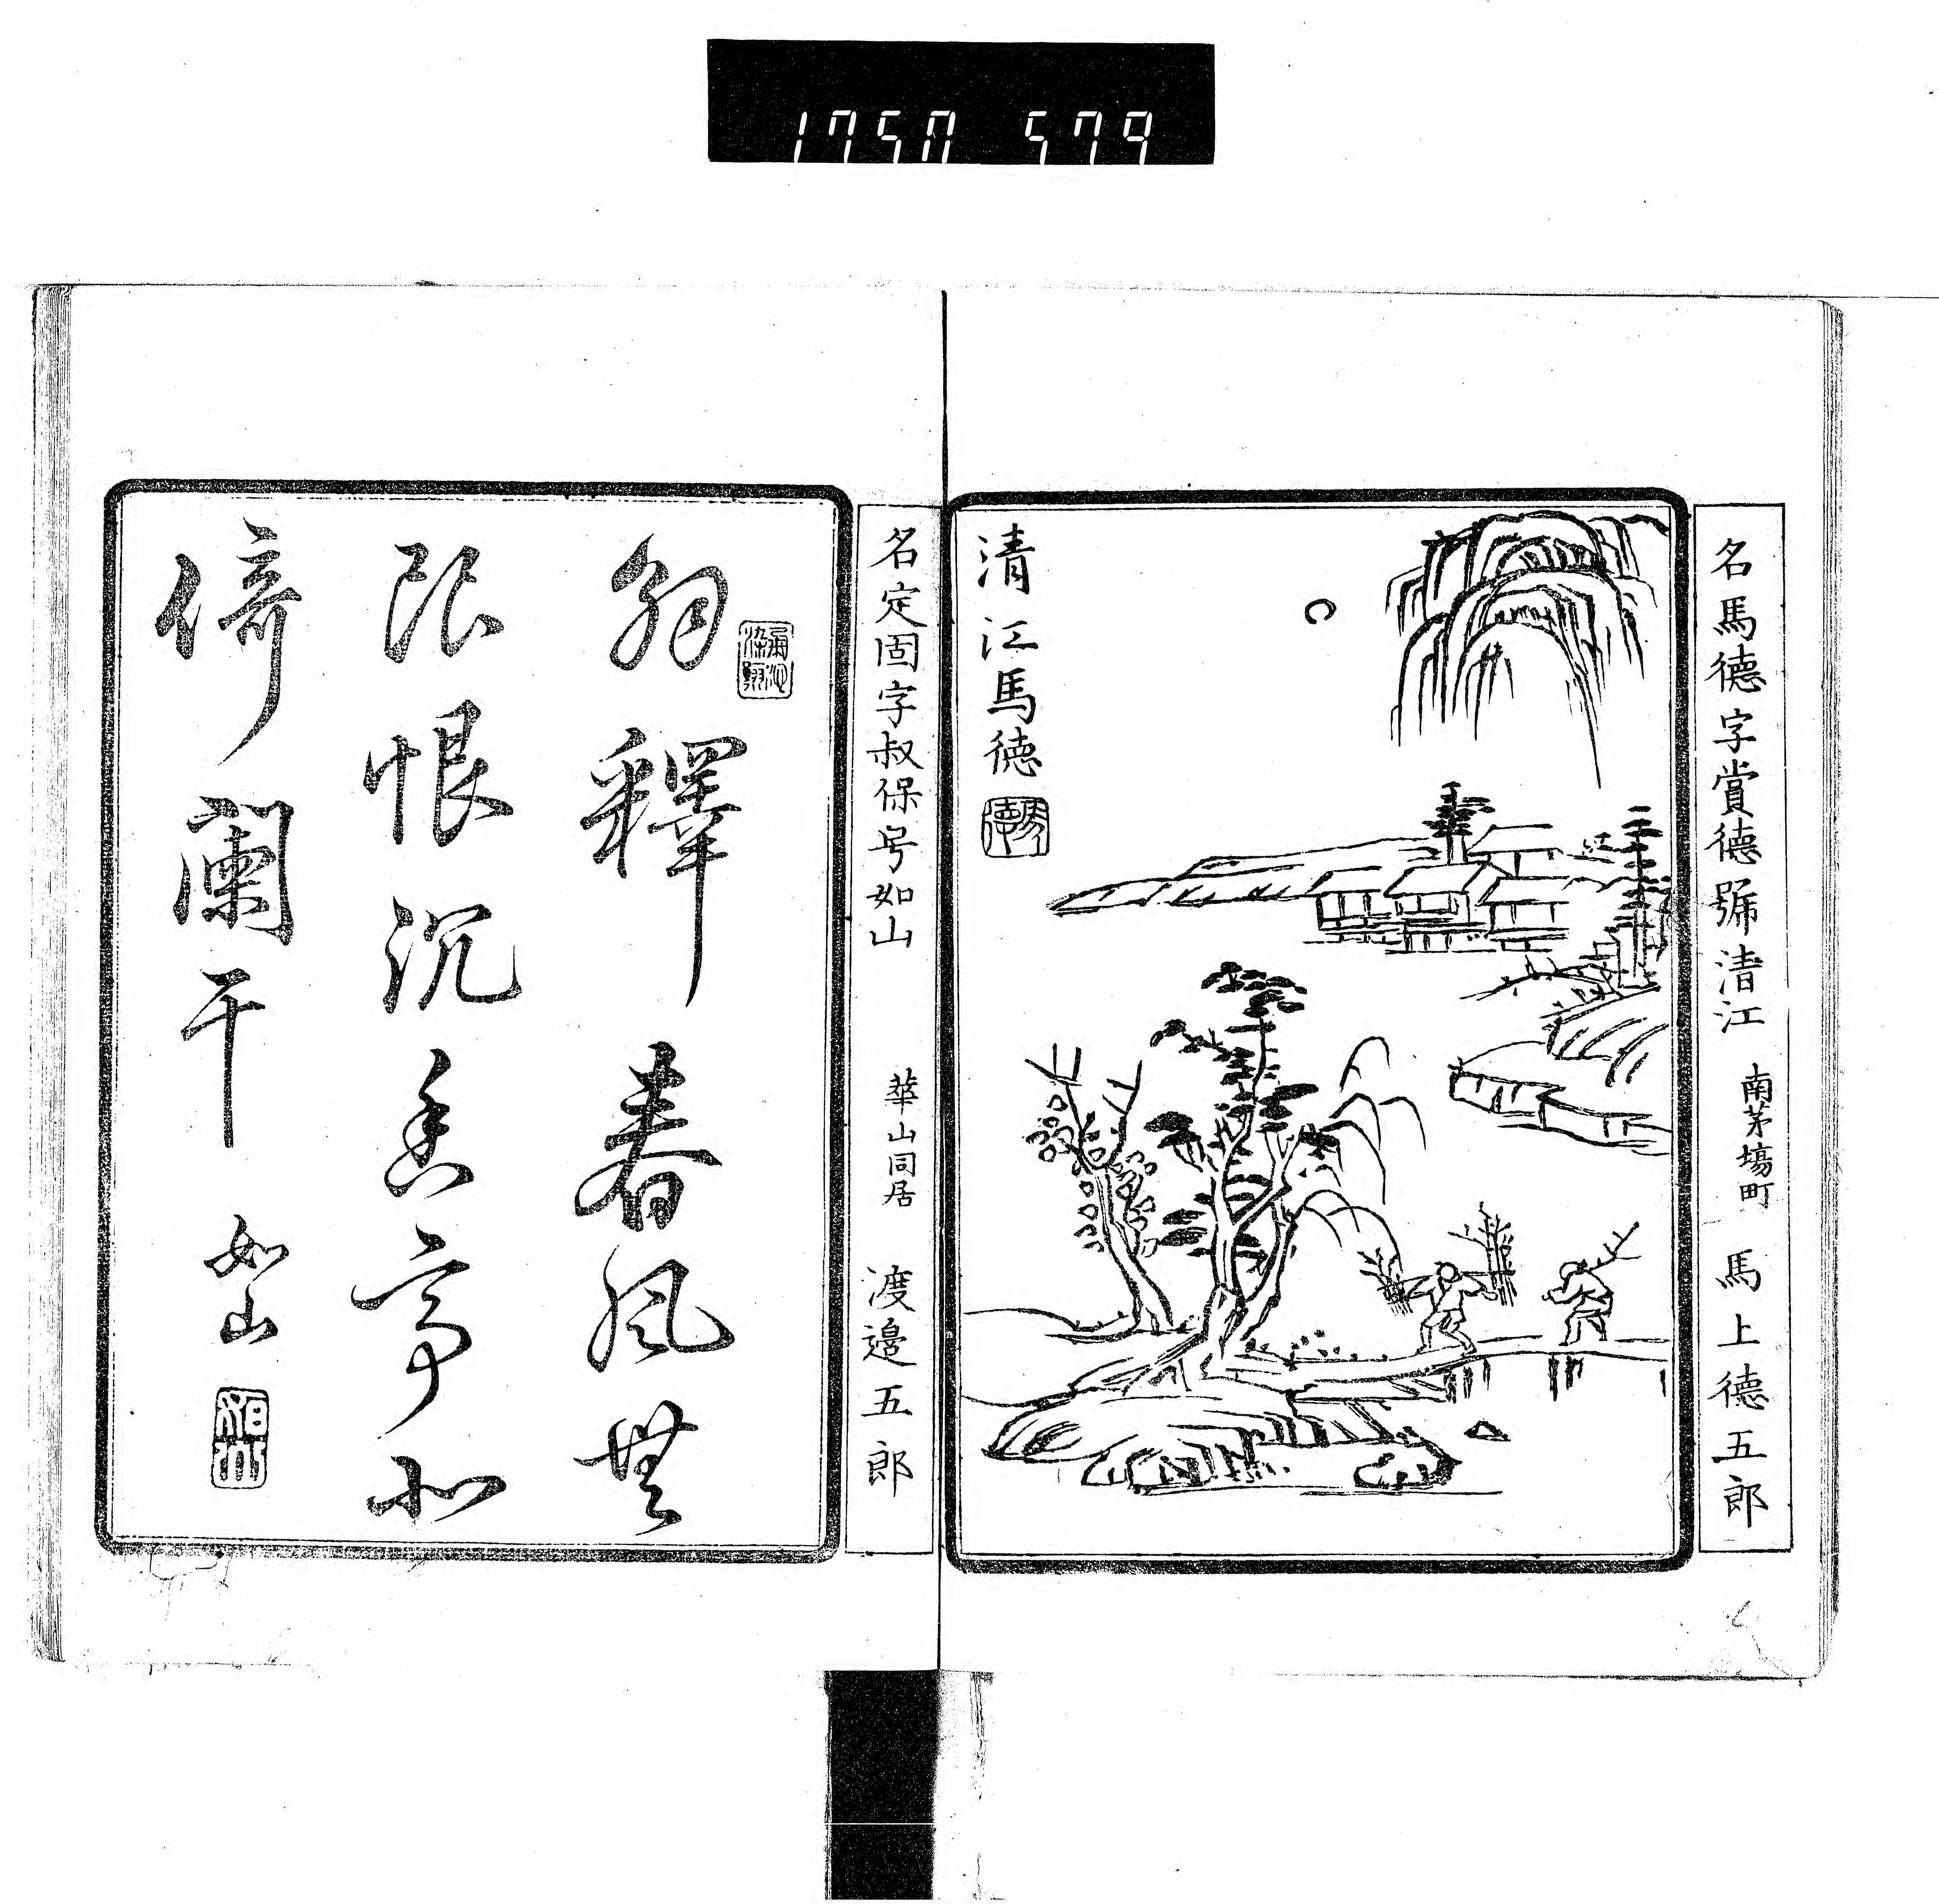 1750 579
名馬德字賞德號清江 南茅場町 馬上德五郎
清江馬德
馬德
名定固字叔保号如山 華山同居 渡邉五郎
解釋春風無
限恨沉香亭北
倚闌干 如山